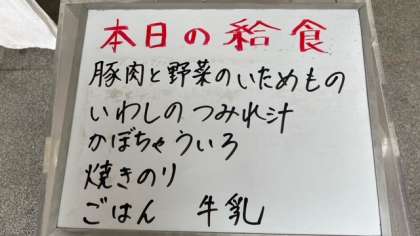 本日の給食
豚肉と野菜のいためもの
いわしのつみれ汁
かぼちゃういろ
焼きのり
ごはん 牛乳